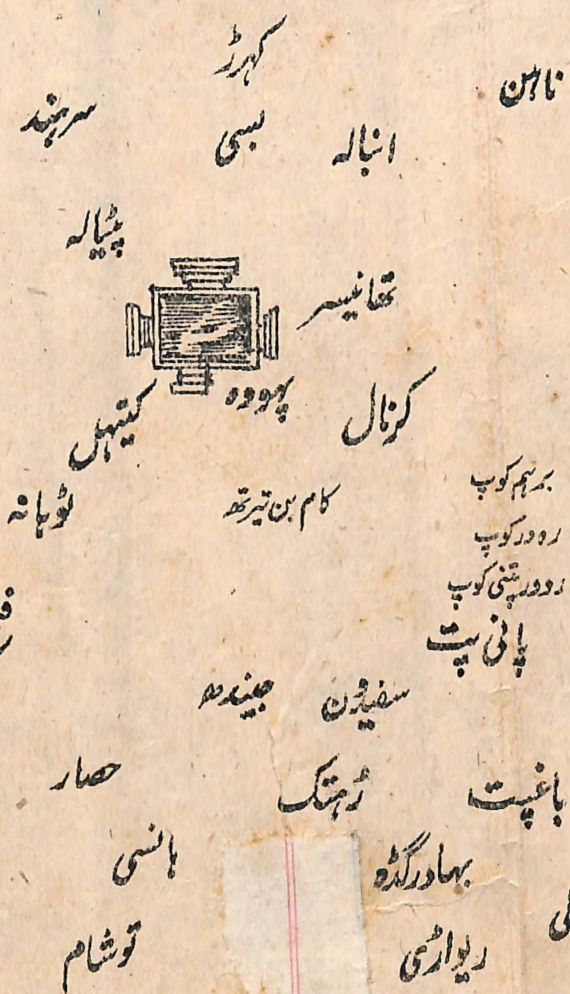 کہرڑ
ناہن
سرہند
بسی
انبالہ
پٹیالہ
تھانیسر
پہووہ
کرنال
کیتہل
برہم کوپ
کام بن تیرتھ
ٹوہانہ
رودر کوپ
رودر پتنی کوپ
پانی پت
جیندھ
سفیدون
حصار
رہتک
باغپت
ہانسی
بہادرگڈہ
توشام
ریواڑی